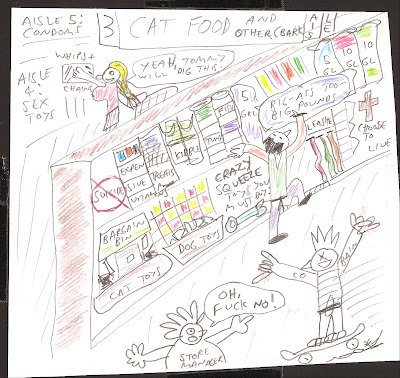 AISLE 5:
CONDOMS
3 CAT FOOD AND
OTHER (BARK)
AISLE
AISLE
4:
SEX
TOYS
WHIPS +
CHAINS
YEAH, TOMMY
WILL DIG THIS
5
GL
10
GL
5
GRL
BIG-ASS 100
BIG POUNDS
LEASHE
CHOOSE
TO
LIVE
SUICIDE
EXPEN
SIVE
VITAMINS
TREATS
KIBBLE
CRAZY
SQUEEZE
TOYS YOU
MUST BUY
BARGAIN
BIN
CAT TOYS
DOG TOYS
OH,
FUCK NO!
STORE
MANAGER